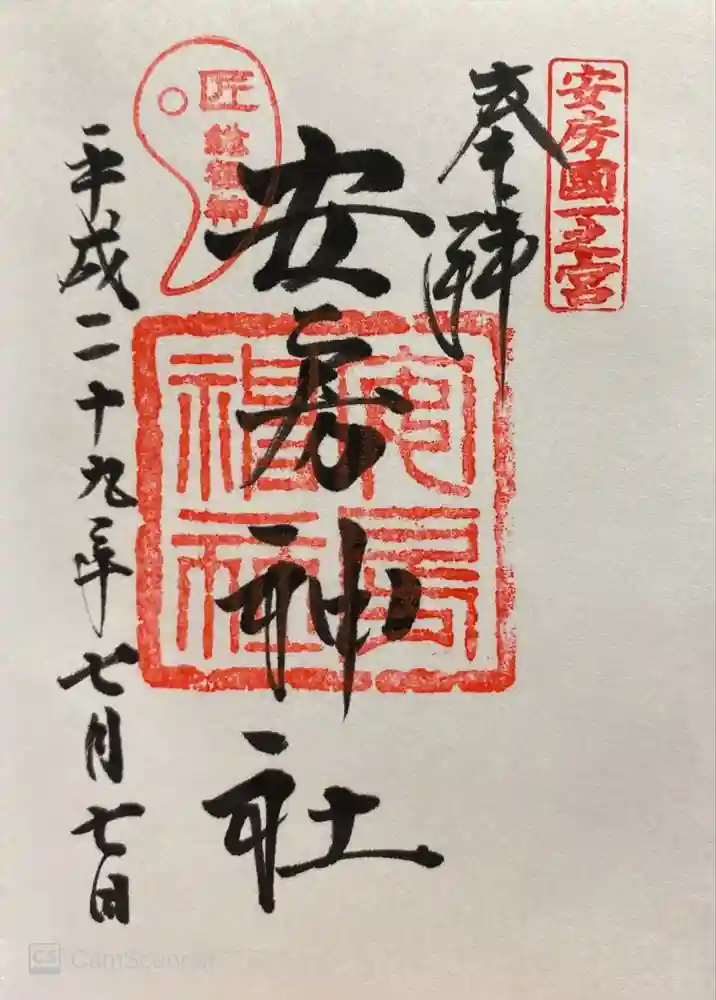 安房國一之宮
奉拝
安房神社
匠 総祖神
安房神社
平成二十九年七月七日
CS CamScanner